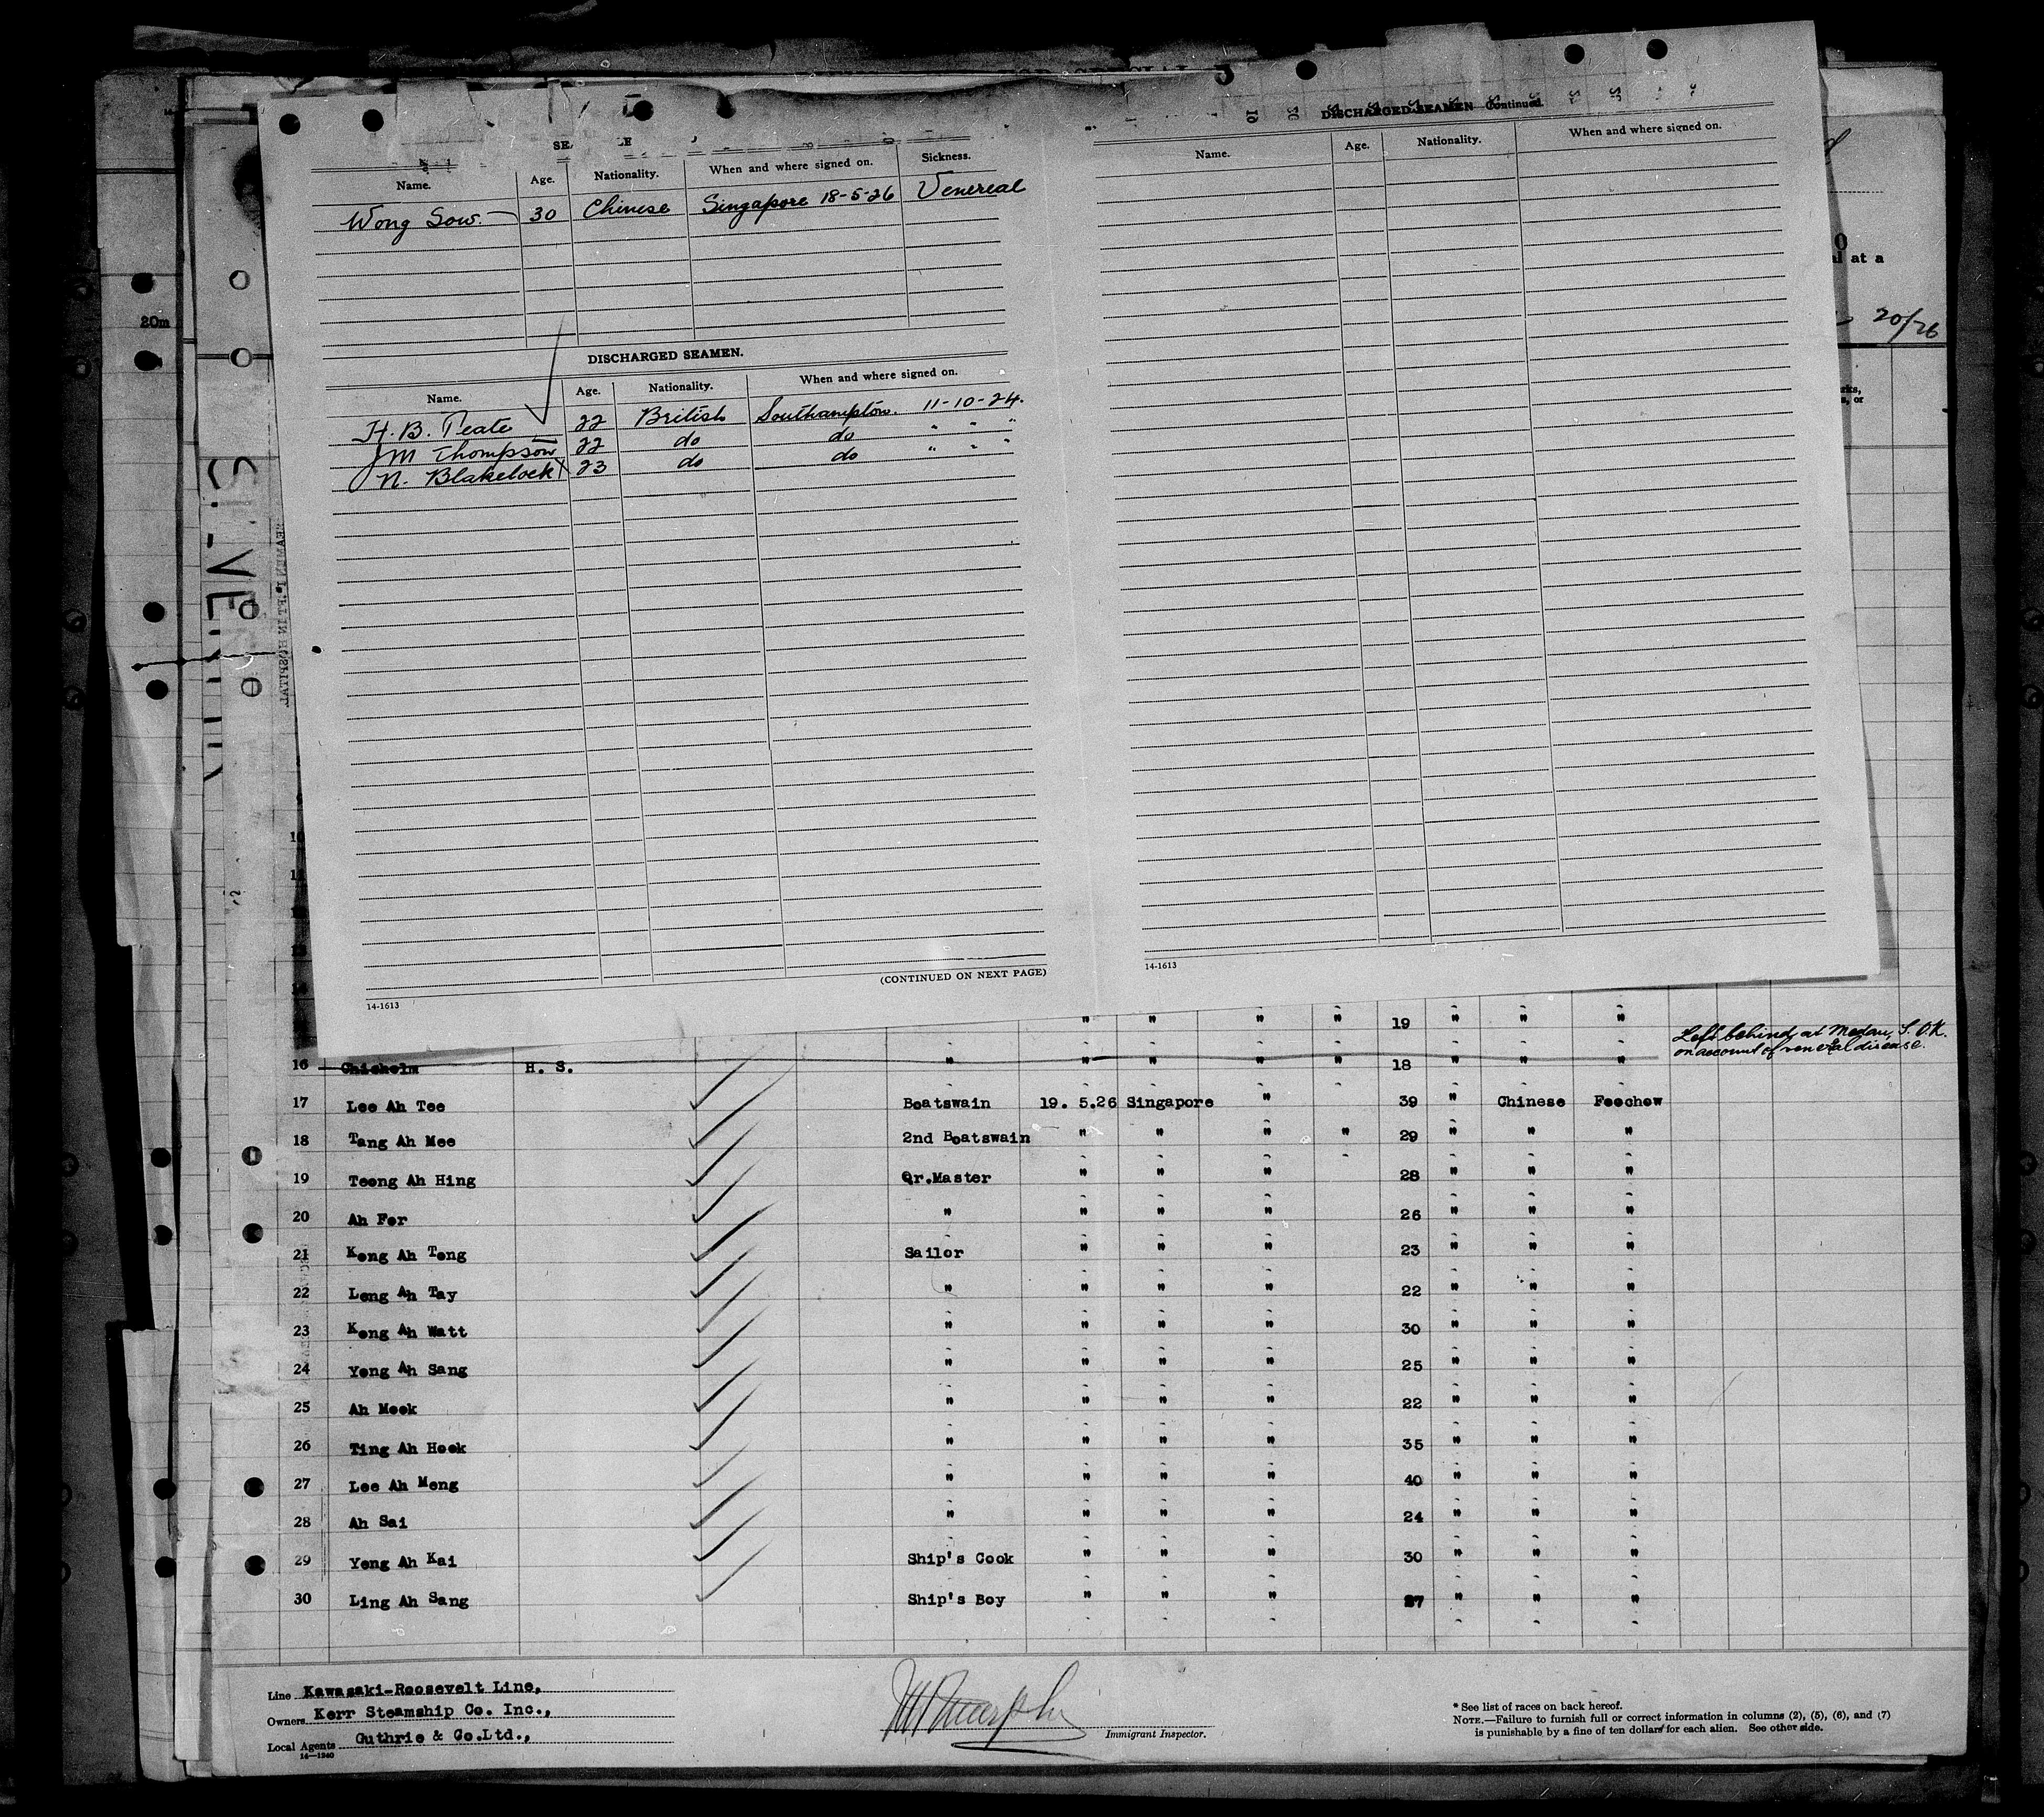 DISCHARGED SEAMEN Continued.
Name. Age. Nationality. When and where signed on. Sickness.
Wong Sow. 30 Chinese Singapore 18-5-26 Venereal
DISCHARGED SEAMEN.
Name. Age. Nationality. When and where signed on.
H. B. Peate 22 British Southampton. 11-10-24.
J M Thompson 22 do do " " "
N. Blakelock 23 do do " " "
(CONTINUED ON NEXT PAGE)
14-1613
Name. Age. Nationality. When and where signed on.
14-1613
al at a
20/26
20m
SEAMEN LEFT IN HOSPITAL
" " " " " 19 " " "
16 Chisholm H. S. " " " " " 18 " " " Left behind at Medan, S.O.K.
on account of venereal disease.
17 Lee Ah Tee Boatswain 19. 5.26 Singapore " 39 " Chinese Foochow
18 Tang Ah Mee 2nd Boatswain " " " " 29 " " "
19 Teong Ah Hing Qr.Master " " " 28 " " "
20 Ah For " " " " 26 " " "
21 Kong Ah Tong Sailor " " " 23 " " "
22 Leng Ah Tay " " " " 22 " " "
23 Kong Ah Watt " " " " 30 " " "
24 Yong Ah Sang " " " " 25 " " "
25 Ah Mook " " " " 22 " " "
26 Ting Ah Hook " " " " 35 " " "
27 Lee Ah Mong " " " " 40 " " "
28 Ah Sai " " " " 24 " " "
29 Yong Ah Kai Ship's Cook " " " 30 " " "
30 Ling Ah Sang Ship's Boy " " " 27 " " "
Line Kawasaki-Roosevelt Line,
Owners Kerr Steamship Co. Inc.,
Local Agents Guthrie & Co.Ltd.,
14-1240
Immigrant Inspector.
* See list of races on back hereof.
NOTE.—Failure to furnish full or correct information in columns (2), (5), (6), and (7)
is punishable by a fine of ten dollars for each alien. See other side.